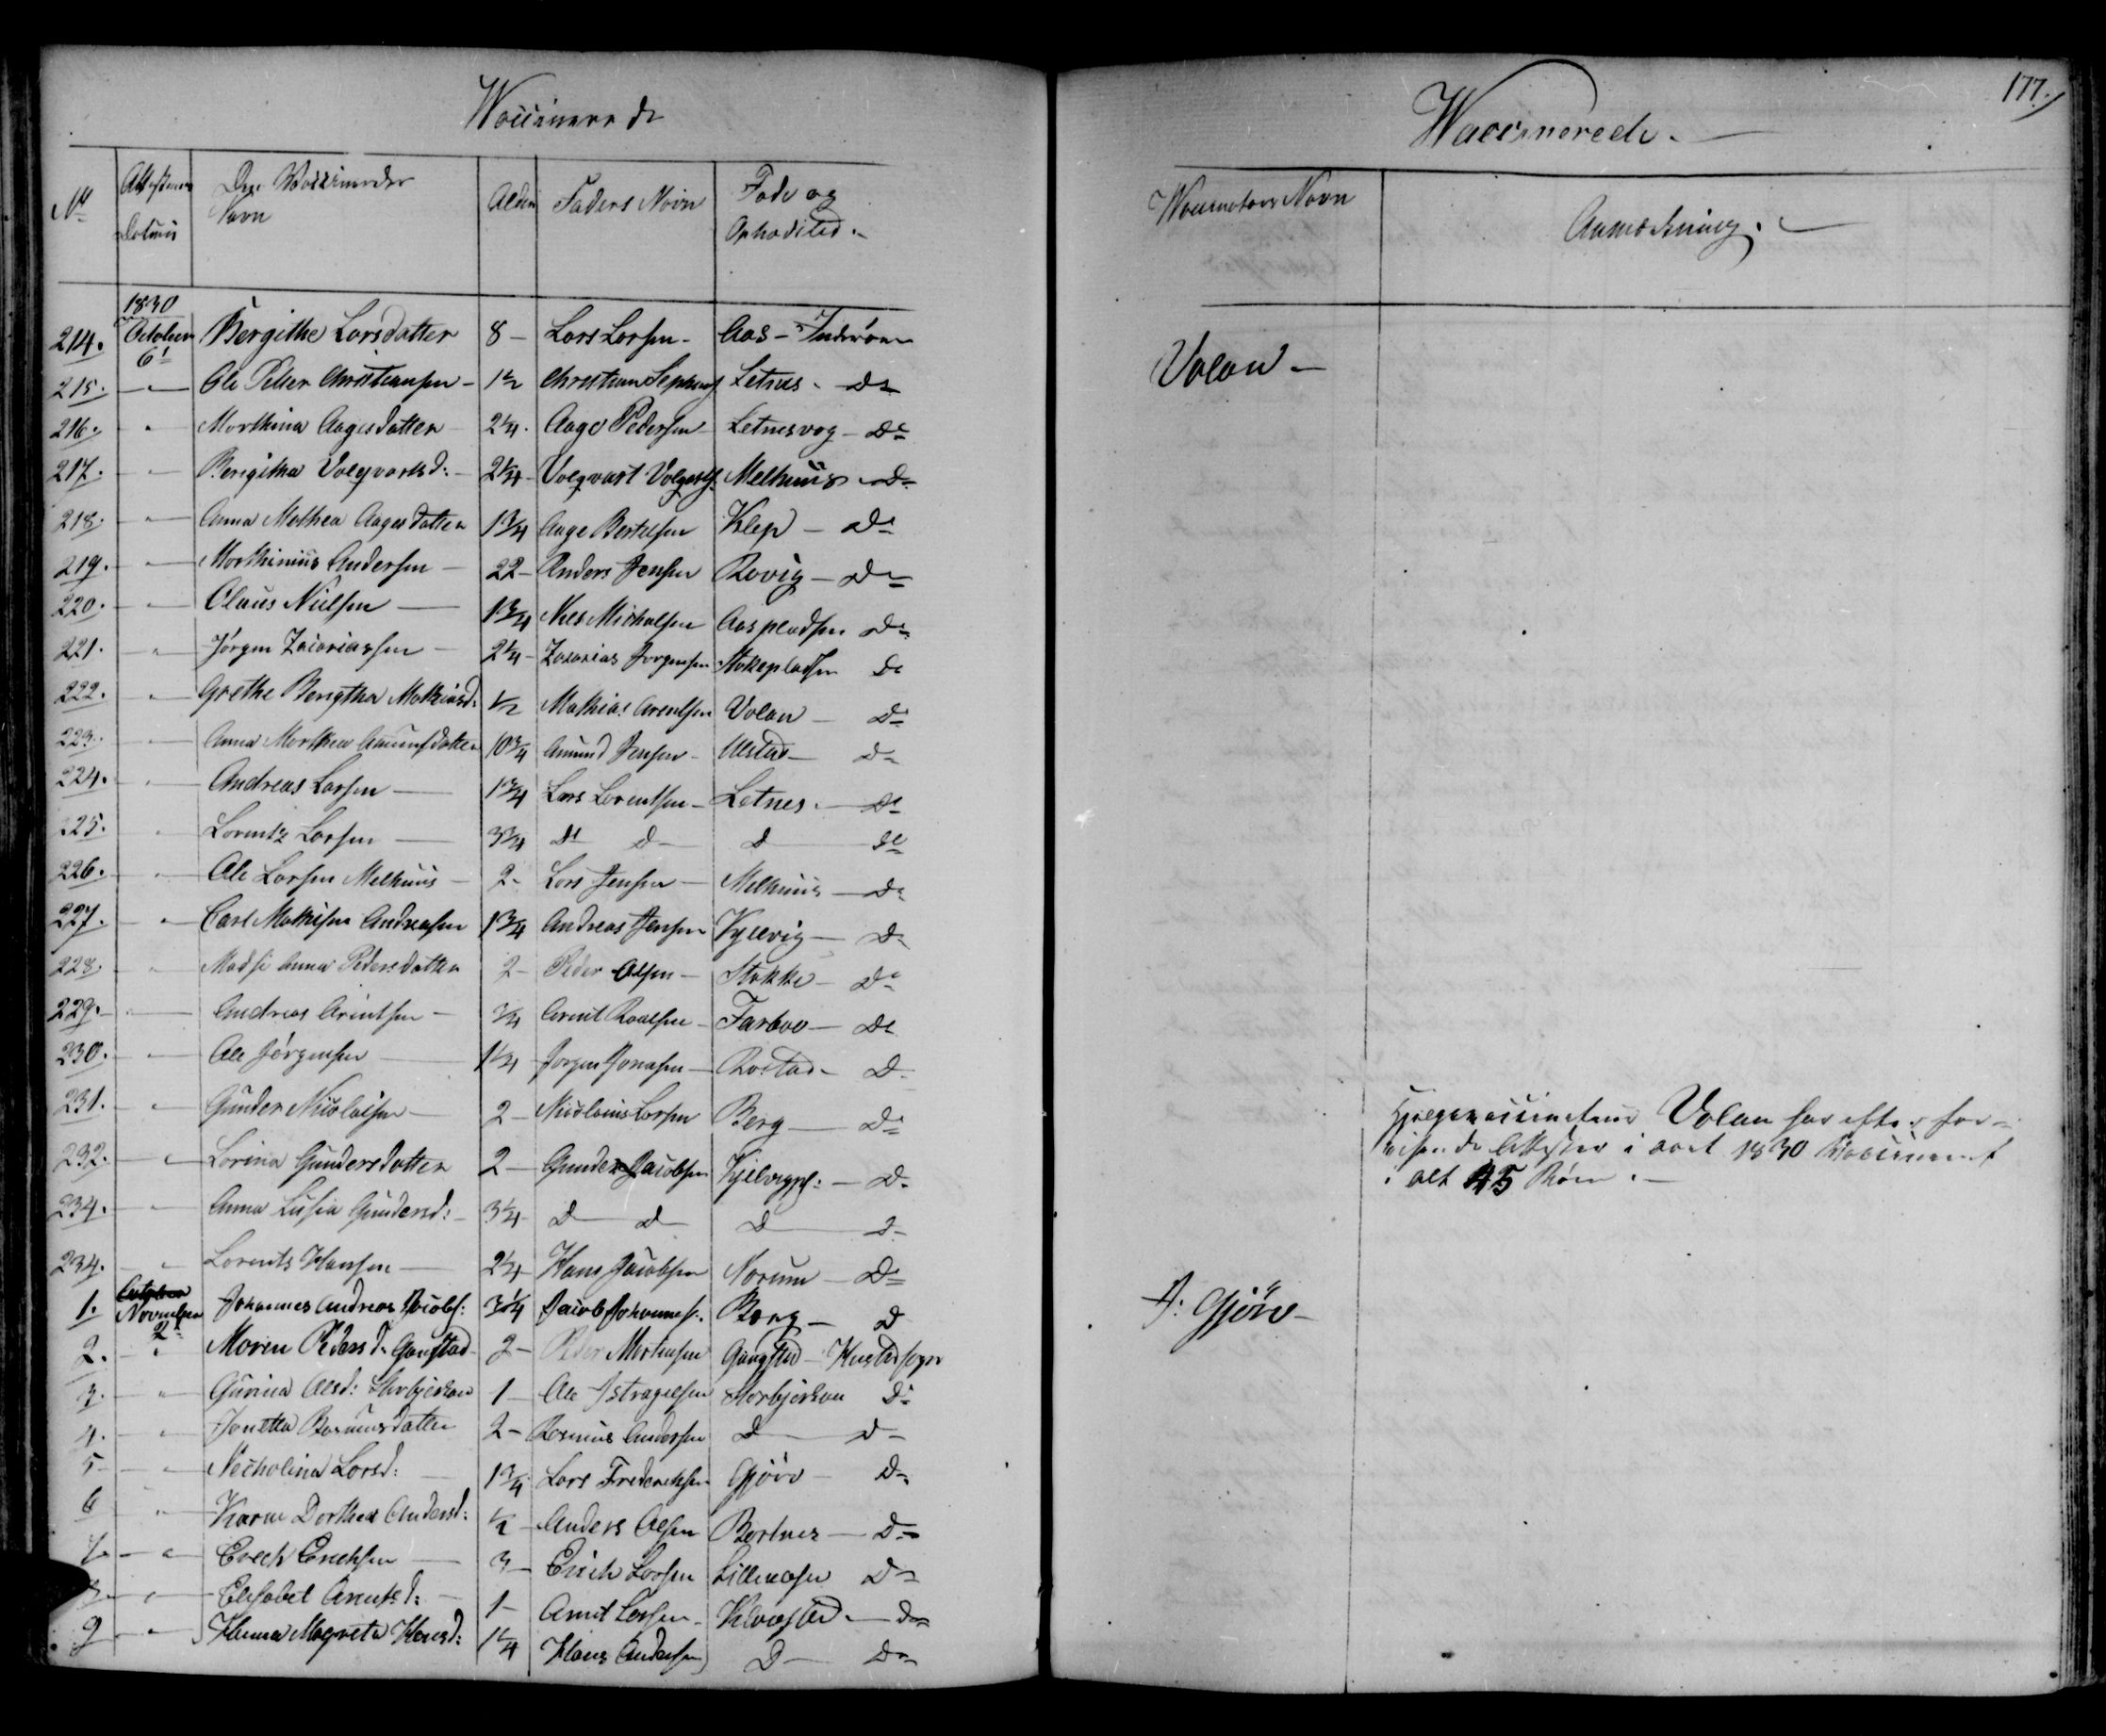 Waccinerede
No Attestens Datum Den Waccineredes Navn Alder Faders Navn Føde og Opholdsted.
1830
214. October 6te Bergithe Larsdatter 8 - Lars Larsen - Aas - Inderøen
215. " Ole Peter Christiansen - 1½ Christian Letnes - Do
216. " Marthina Aagesdatter 2¼ Aage Pedersen Letnesvog - Do
217. " Bergitha Volqvartsd: - 2¼ Volqvart Volqvarts. Melhuus - Do
218. " Anna Mathea Aagesdatter 1¾ Aage Bertelsen Klep - Do
219. " Morthinius Andersen - 22 - Anders Jensen Rovig - Do
220. " Claus Nielsen - 1¾ Niels Michalsen Aaspladsen Do
221. " Jörgen Zacariassen - 2¼ - Zacarias Jørgensen Stokkepladsen Do
222. " Grethe Bergitha Mathiasd: ½ Mathias Arentsen Volan - Do
223. " Anna Marthea Amundsdatter 10¾ Amund Jensen - Ulstad - Do
224. " Andreas Larsen - 1¾ Lars Lorentsen - Letnes. - Do
225. " Lorentz Larsen - 3¾ Do D - D Do
226. " Ole Larsen Melhuus - 2 - Lars Jensen - Melhuus - Do
227. " Carl Mathisen Andreasen 1¾ Andreas Jensen - Do
228. " Anna Pedersdatter 2 - Peder Olsen - Stokke - Do
229. " Andreas Arentsen - ¾ Arent Roalsen - Farboe - Do
230. " Ole Jörgensen - 1¼ Jørgen Jonasen - Rostad - D
231. " Gunder Nicolaisen - 2 - Nicolaus Larsen Berg - Do
232. " Lorina Gundersdatter 2 - Gunder Jacobsen - D.
234. " Anna Lusia Gundersd: - 3¼ D - D - D - D -
234. " Lorents Hansen - 2¼ Hans Jacobsen Norum - Do
1. November 2 Johannes Andreas Jacobs: 3¼ Jacob Johannes. Berg - D
2. " Maren Pedersd. Gangstad 2 - Peder Mortensen Gangstad - Hustad sogn
3. " Gurina Olsd: 1 Ole Do
4. " Jonetta Rasmusdatter 2 - Rasmus Andersen D - D -
5 " Nicholina Larsd: 1¾ Lars Frederichsen Gjörv - Do
6 " Karen Dorthea Andersd: ½ - Anders Olsen Bortnes - Do
7. " Erich Erichsen - 3 - Erich Larsen Lillemosen Do
8. " Elisabet Arentsd: - 1 - Arent Larsen - - Do
9 " Hanna Magreta Hansd: 1¼ Hans Andersen D - Do
177.
Waccinerede. -
Waccinators Navn Anmærkning. -
Volan -
Hjelpevaccinateur Volan har efter for-
visende Attester i aaret 1830 Vaccineret
i alt 45 Børn. -
A: Gjörv -